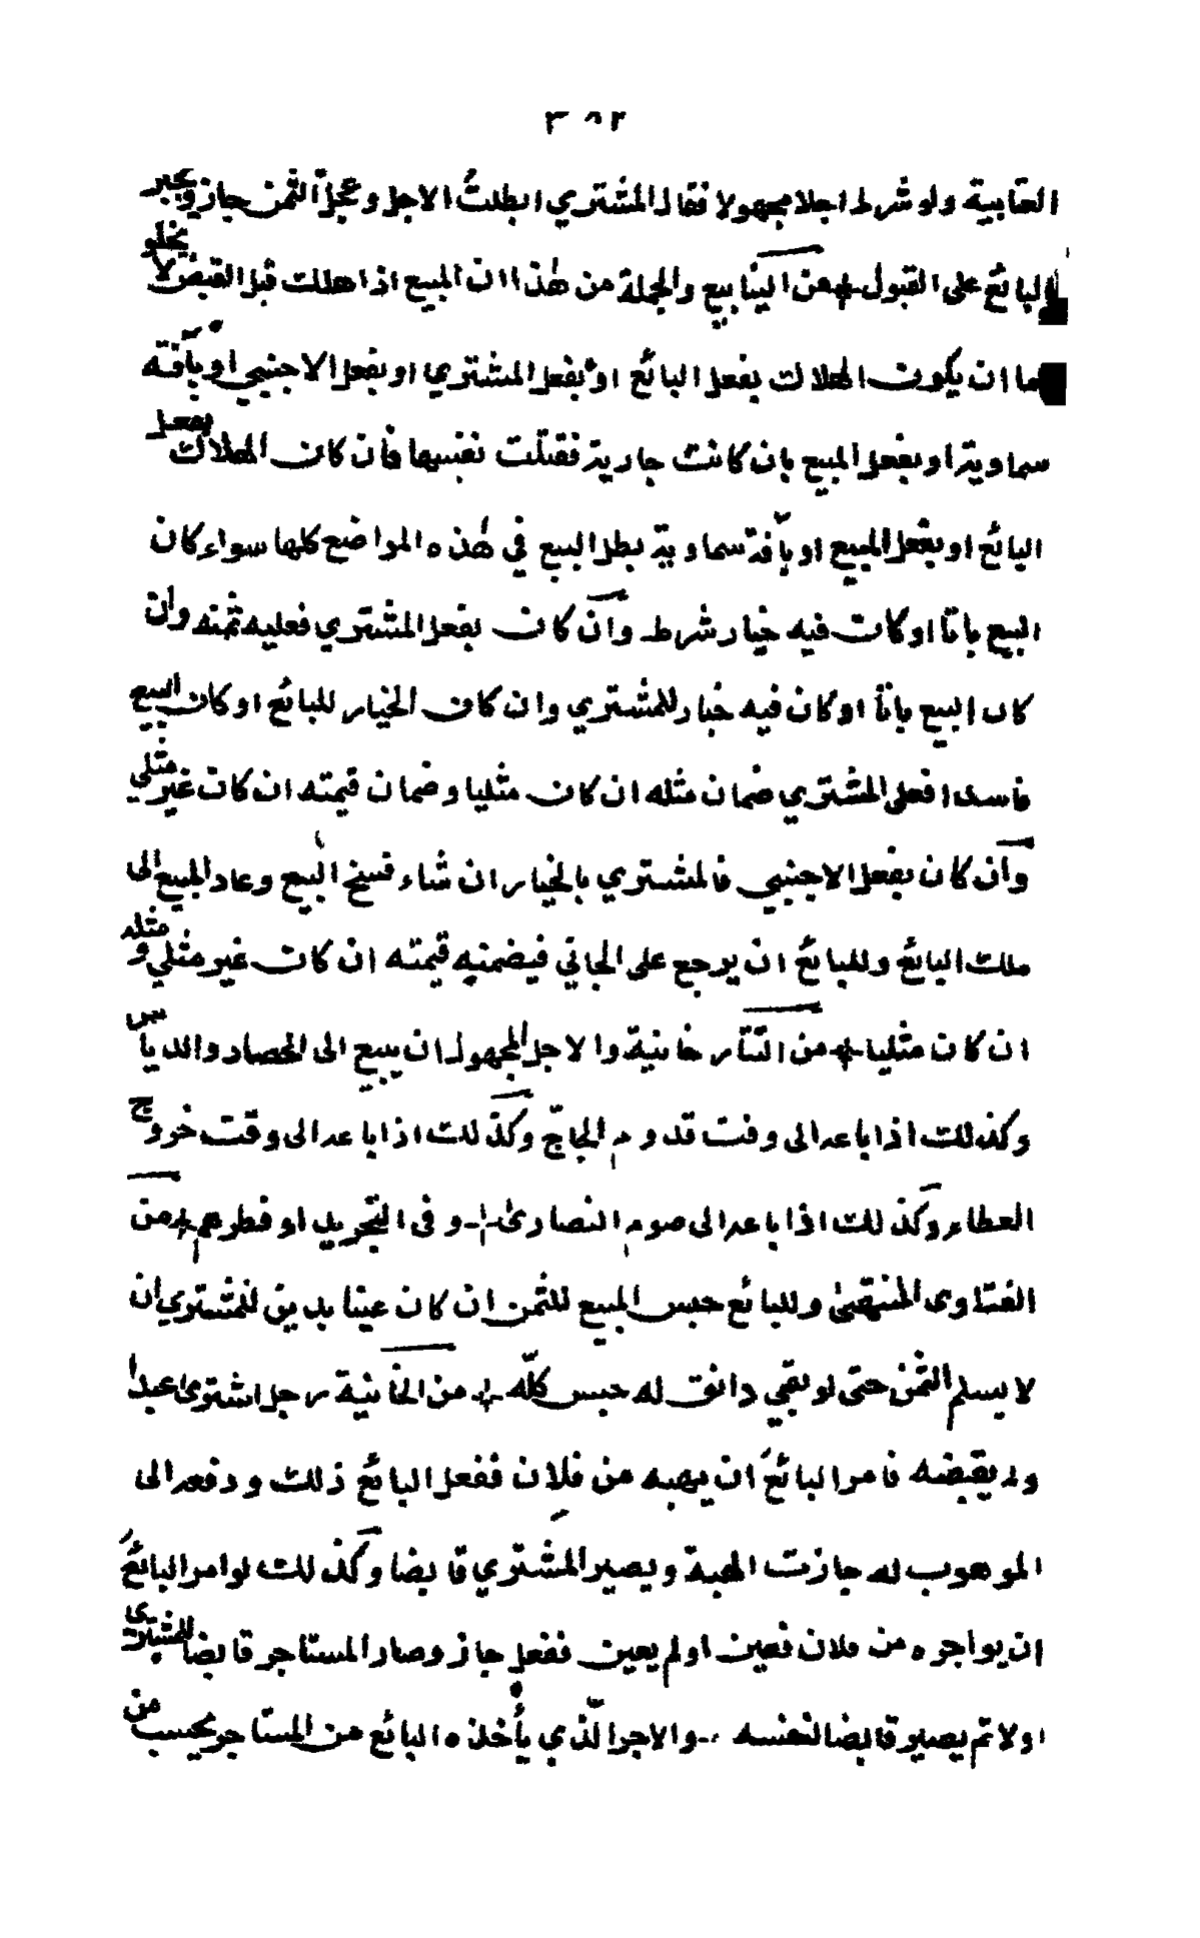 ٣٨٢
العتابية ولو شرط اجلا مجهولا فقال المشتري ابطلتُ الاجل وعجل الثمن جاز ويجبر
البائع على القبول من الينابيع والجملة من هذا ان المبيع اذا هلك قبل القبض لا يخلو
اما ان يكون الهلاك بفعل البائع او بفعل المشتري او بفعل الاجنبي او بآفة
سماوية او بفعل المبيع بان كانت جارية فقتلت نفسها فان كان الهلاك بفعل
البائع او بفعل المبيع او بآفة سماوية بطل البيع في هذه المواضع كلها سواء كان
البيع باتا او كان فيه خيار شرط وان كان بفعل المشتري فعليه ثمنه وان
كان البيع باتا او كان فيه خيار للمشتري وان كان الخيار للبائع او كان البيع
فاسدا فعلى المشتري ضمان مثله ان كان مثليا وضمان قيمته ان كان غير مثلي
وان كان بفعل الاجنبي فالمشتري بالخيار ان شاء فسخ البيع وعاد المبيع الى
ملك البائع وللبائع ان يرجع على الجاني فيضمنه قيمته ان كان غير مثلي ومثله
ان كان مثليا من التتار خانية والاجل المجهول ان يبيع الى الحصاد والدياس
وكذلك اذا باعه الى وقت قدوم الحاجّ وكذلك اذا باعه الى وقت خروج
العطاء وكذلك اذا باعه الى صوم النصارى وفى التجريد او فطرهم من
الفتاوى وللبائع حبس المبيع للثمن ان كان عينا بدين للمشتري ان
لا يسلم الثمن حتى لو بقي دانق له حبس كلّه من الخانية رجل اشترى عبدا
ولم يقبضه فامر البائع ان يهبه من فلان ففعل البائع ذلك ودفعه الى
الموهوب له جازت الهبة ويصير المشتري قابضا وكذلك لو امر البائع
ان يواجره من فلان فعين او لم يعين ففعل جاز وصار المستاجر قابضا للمشترى
اولا ثم يصير قابضا لنفسه والاجر الّذي يأخذه البائع من المستاجر يحسب من